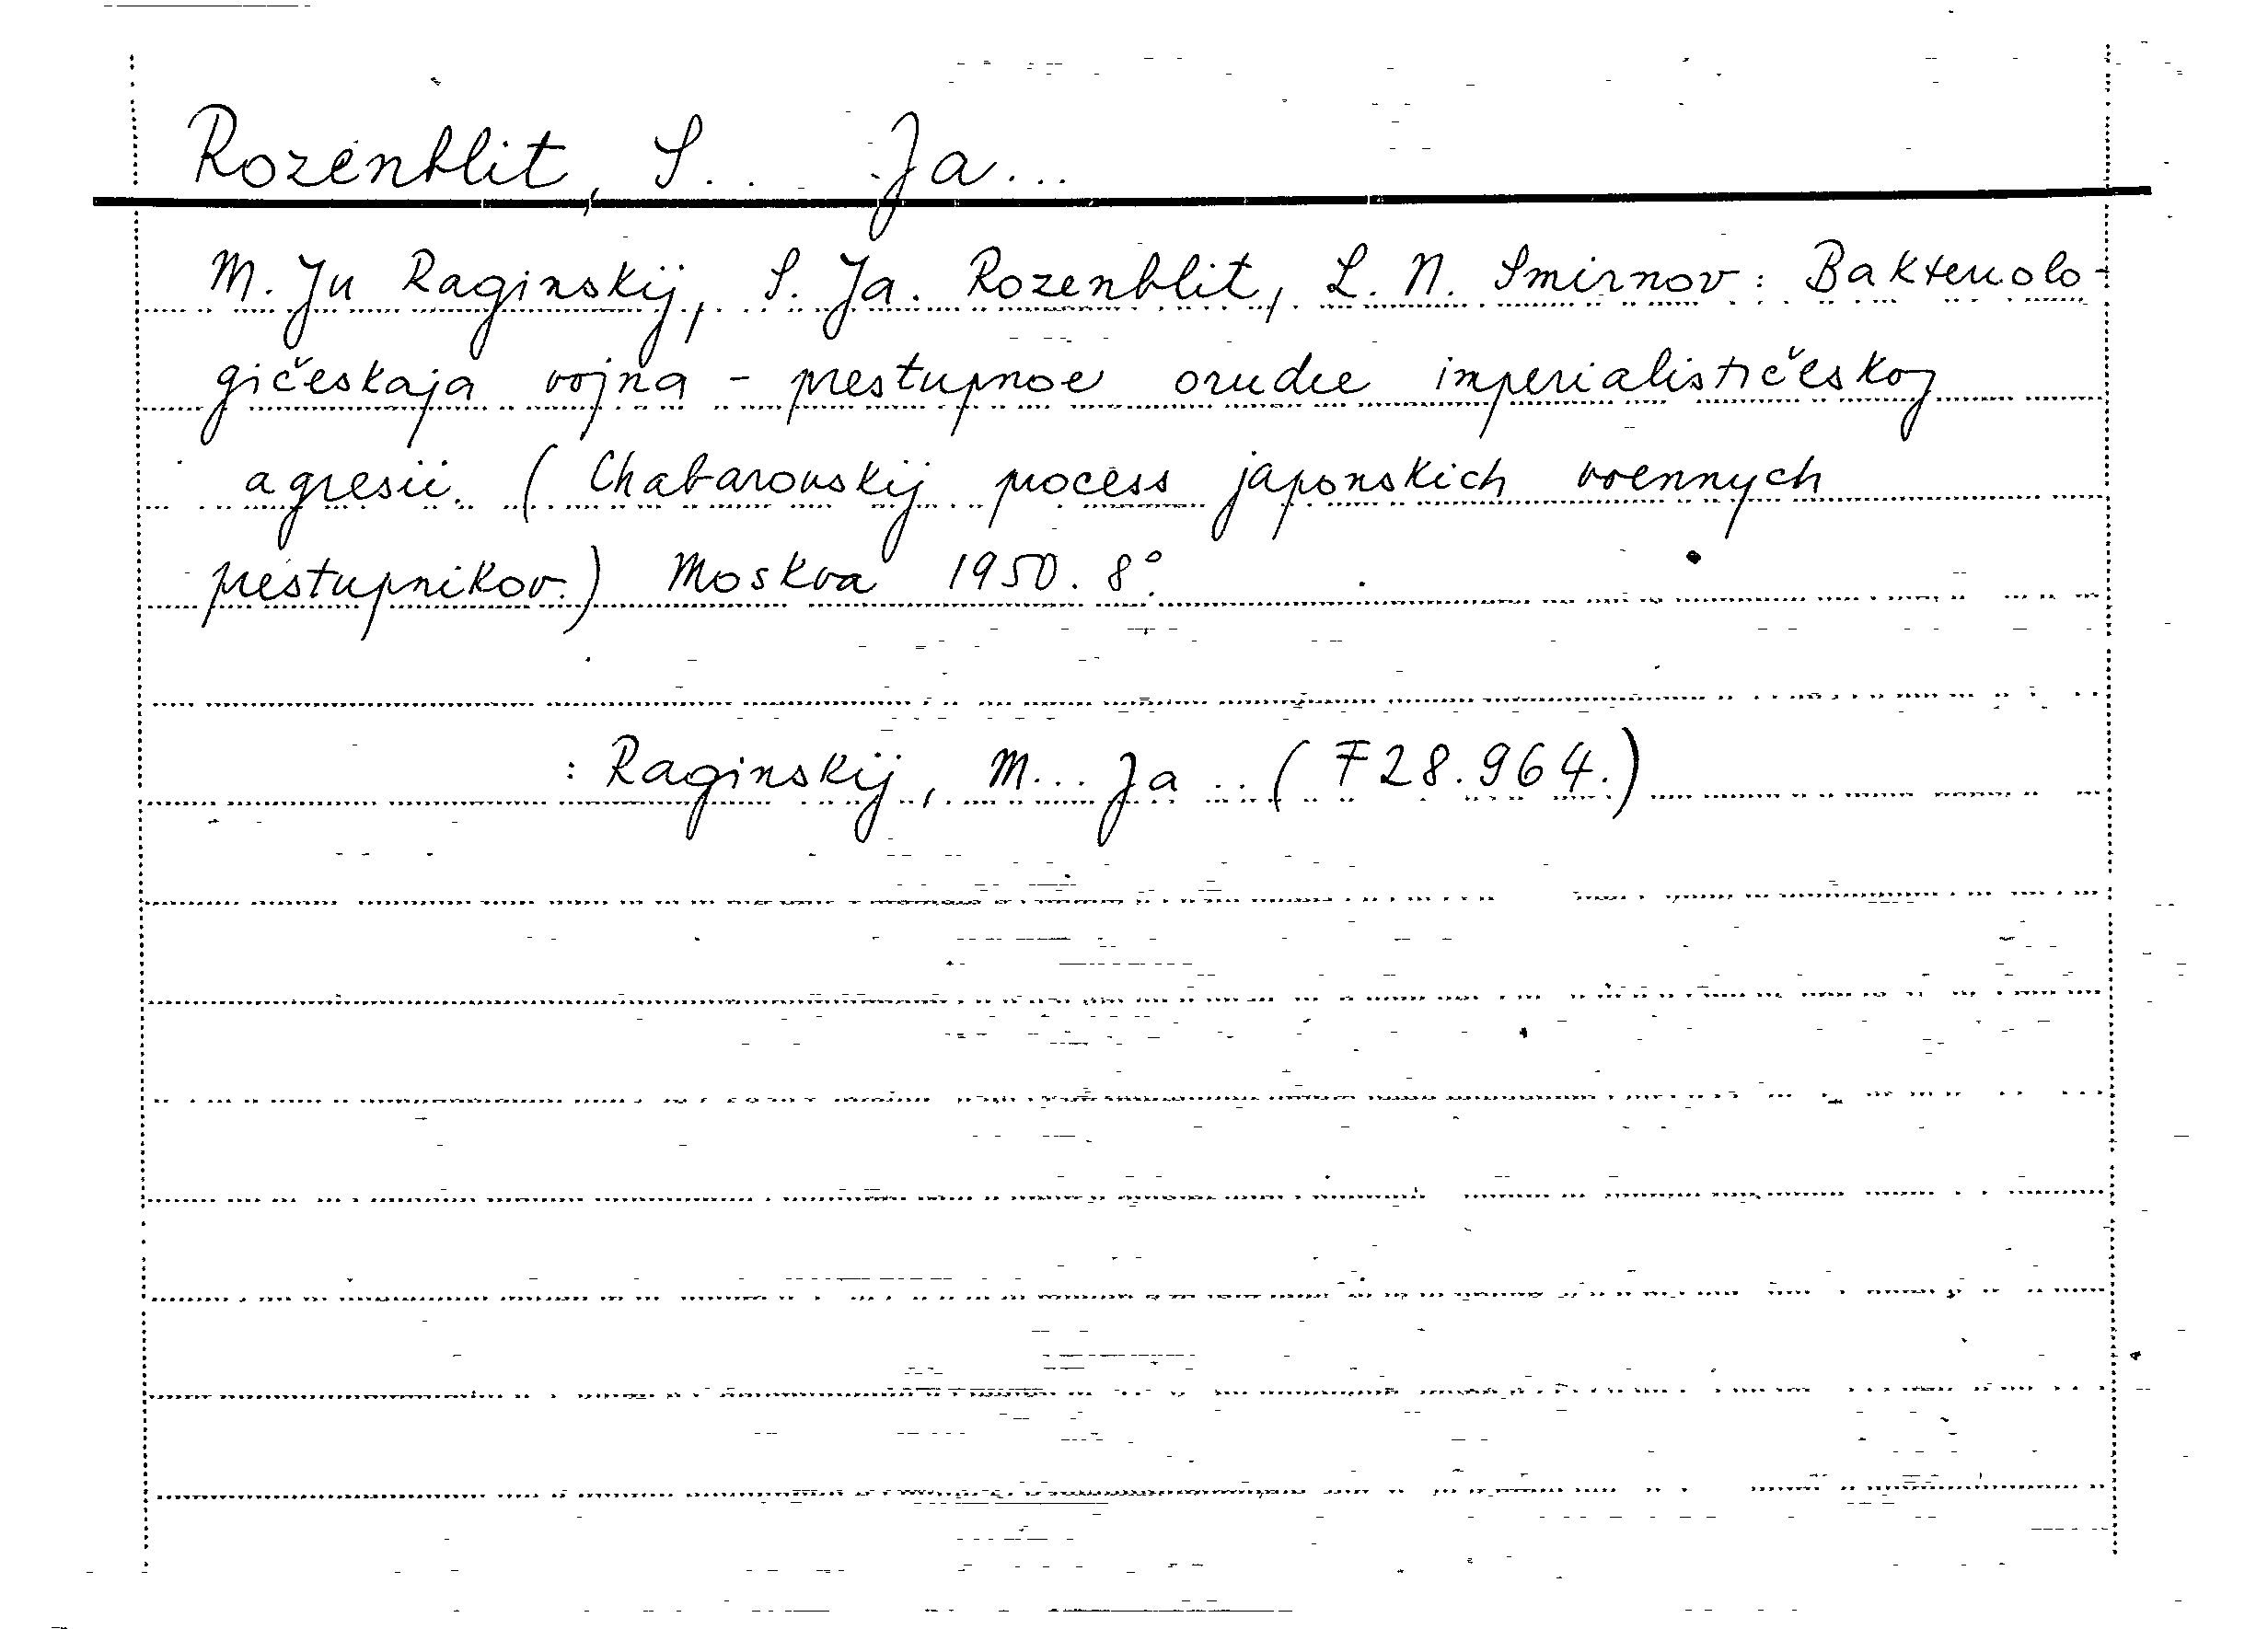 Rozenblit, S... Ja...
M. Ju Raginskij, S. Ja. Rozenblit, L. N. Smirnov: Bakteriolo-
gičeskaja vojna - prestupnoe orudie imperialističeskoj
agresii. (Chabarovskij process japonskich voennych
prestupnikov.) Moskva 1950. 8°.
: Raginskij, M... Ja .. (F28.964.)